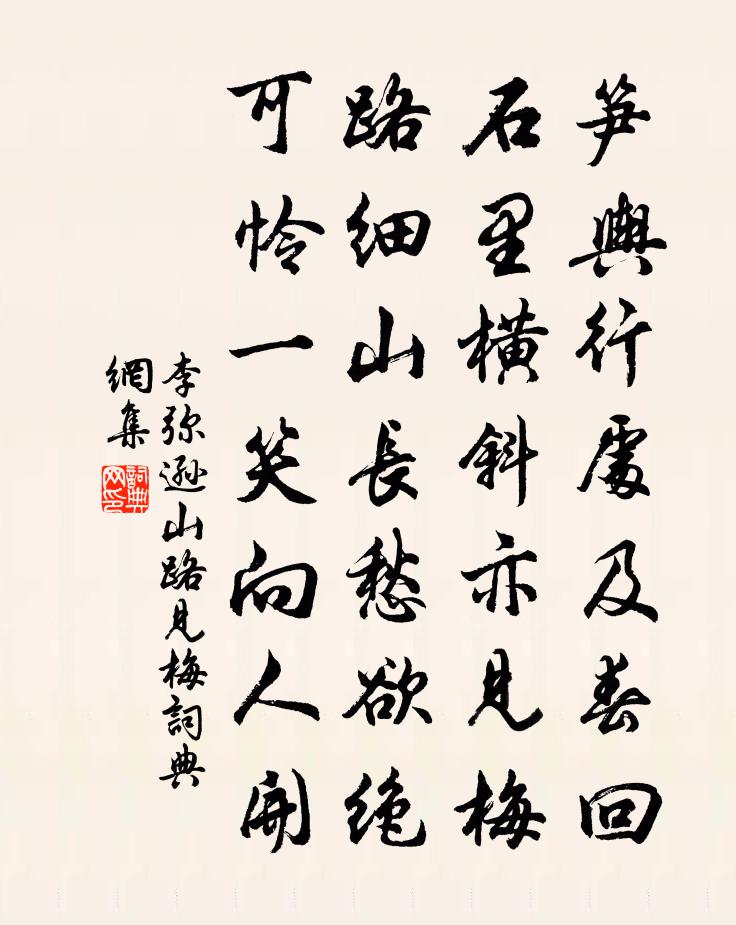 笋輿行處及春回
石里橫斜亦見梅
路細山長愁欲絶
可怜一笑向人開
李弥遜山路見梅詞典
網集
詞典网印